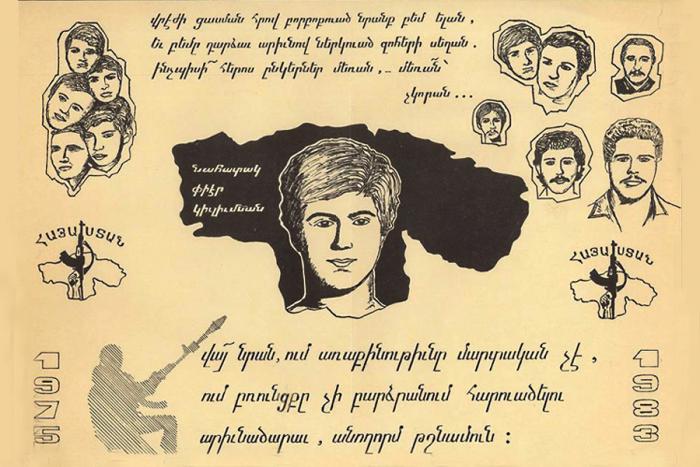 վրէժի ցասման հրով բորբոքուած նրանք բեմ ելան,
եւ բեմը դարձաւ արիւնով ներկուած զոհերի սեղան.
ինչպիսի՜ հերոս ընկերներ մեռան,... մեռան՝
չկորան...
Նահատակ
փիէր
կիւլիւմեան
ՀԱՅԱՍՏԱՆ
ՀԱՅԱՍՏԱՆ
վա՜յ նրան, ում առաքինութիւնը մարտական չէ,
ում բռունցքը չի բարձրանում հարուածելու
արիւնածարաւ, անողորմ թշնամուն:
1975
1983